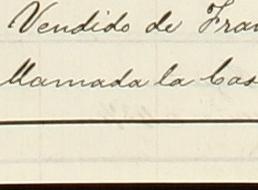 Vendido de Fran
llamada la Cas